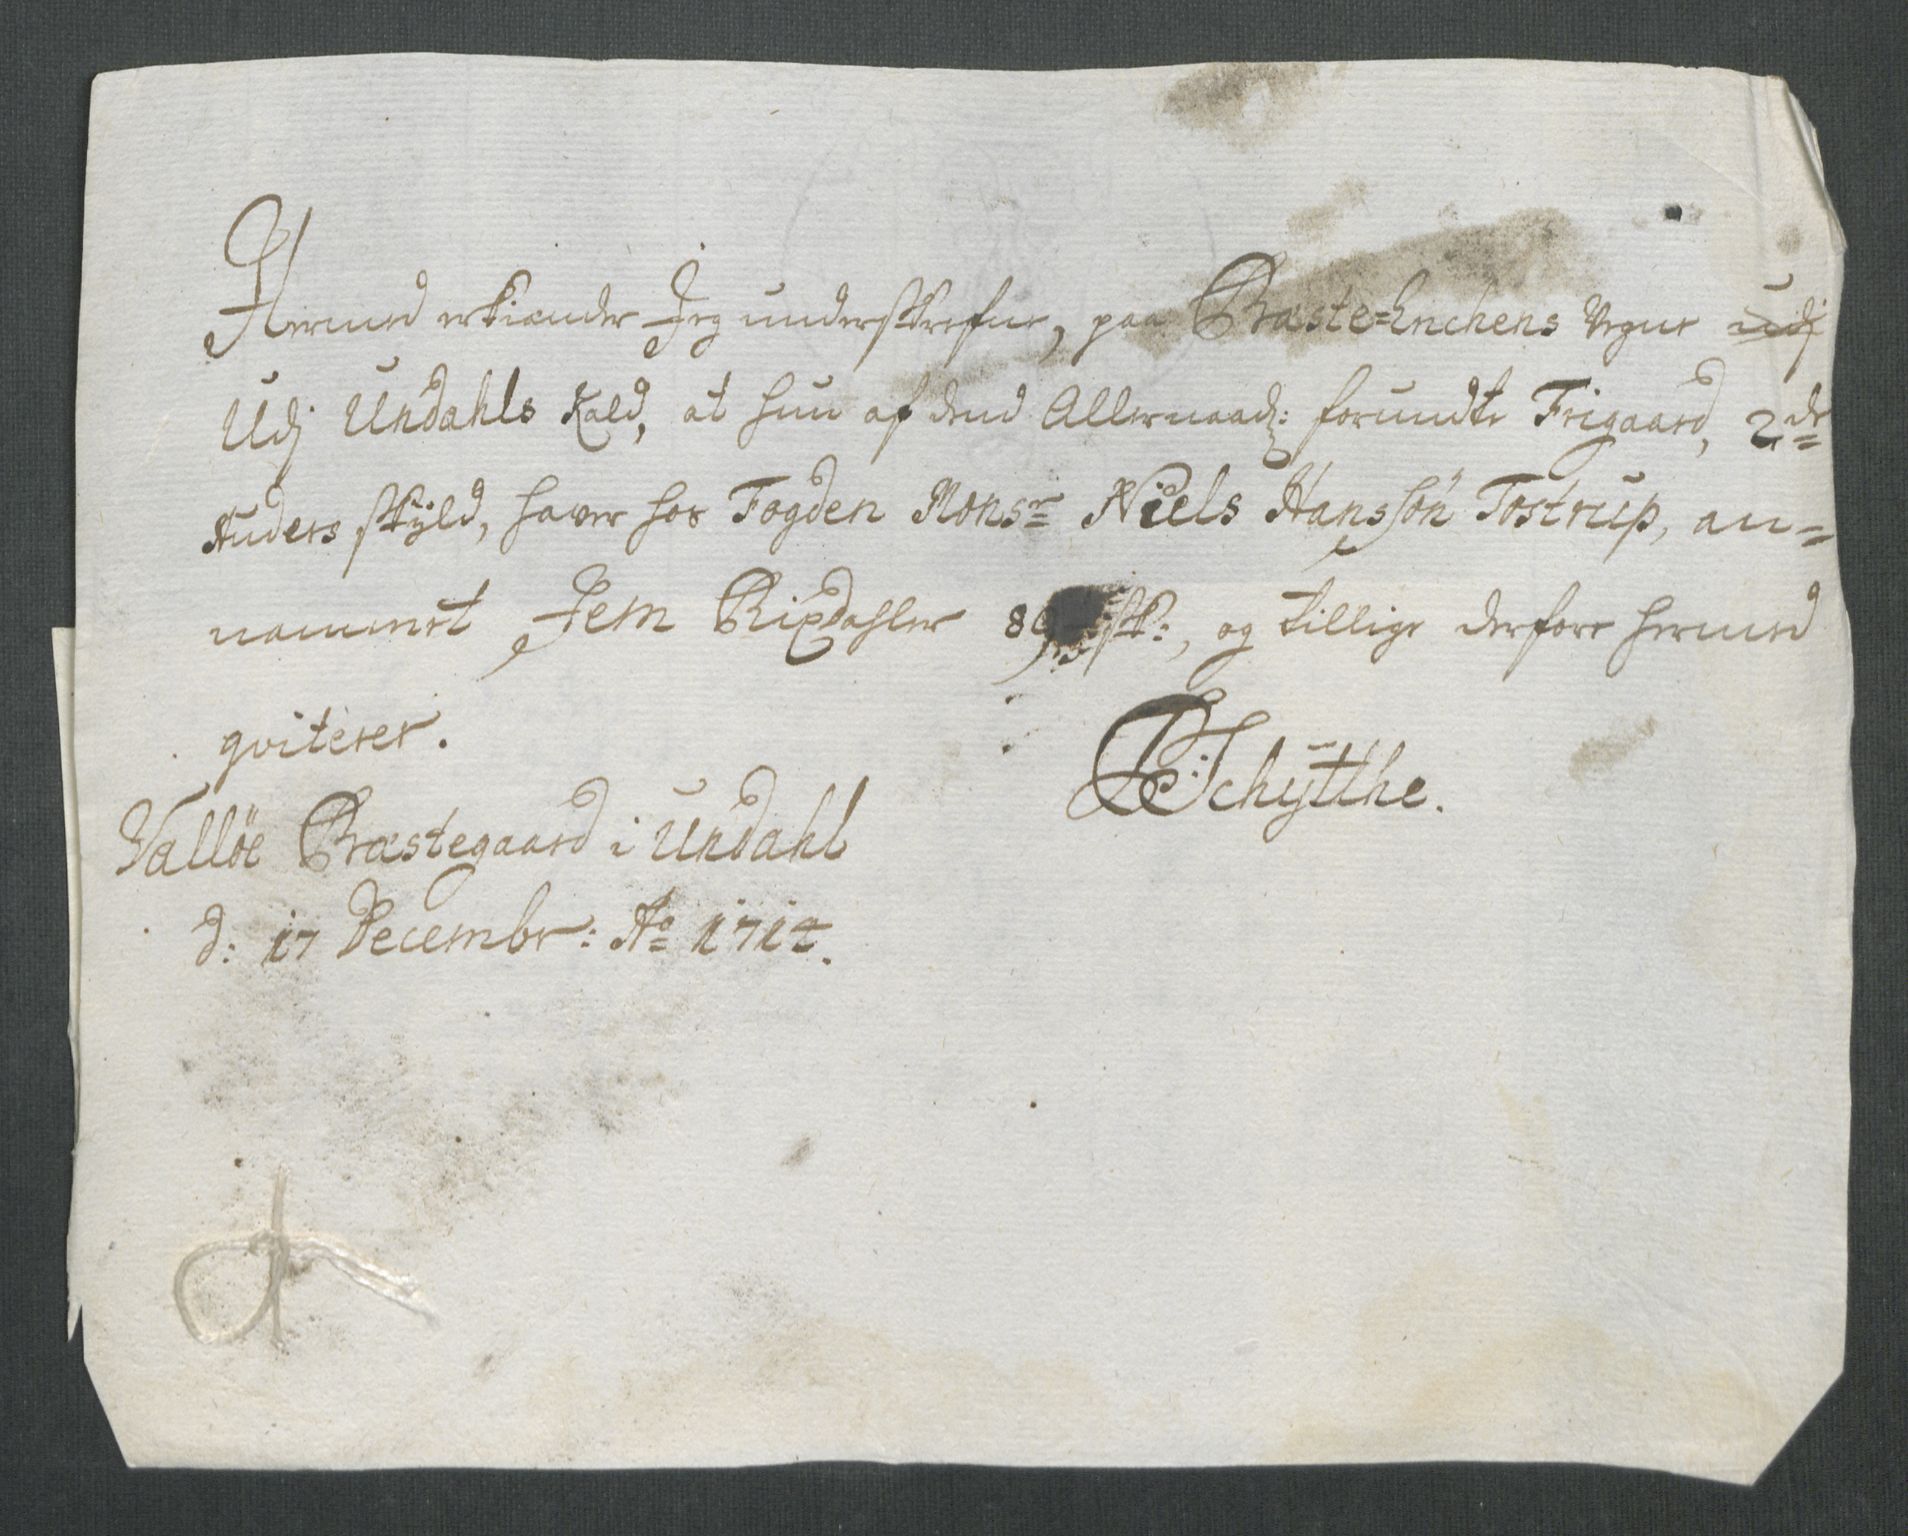 Hermed erkiænder Jeg underskrefne, paa Præste-Enchens Vegne udj
Udj Undahls Kald, at hun af dend Allernaadz: forundte Frigaard, 2de
Huders skÿld, haver hos Fogden Monsr Niels Hanssön Tostrup, an=
nammet Fem Rixdahler sk:, og tillige derfore hermed
qviterer.
PSchÿtthe.
Valløe Præstegaard i Undahl
d: 17 Decembr: Ao 1714.